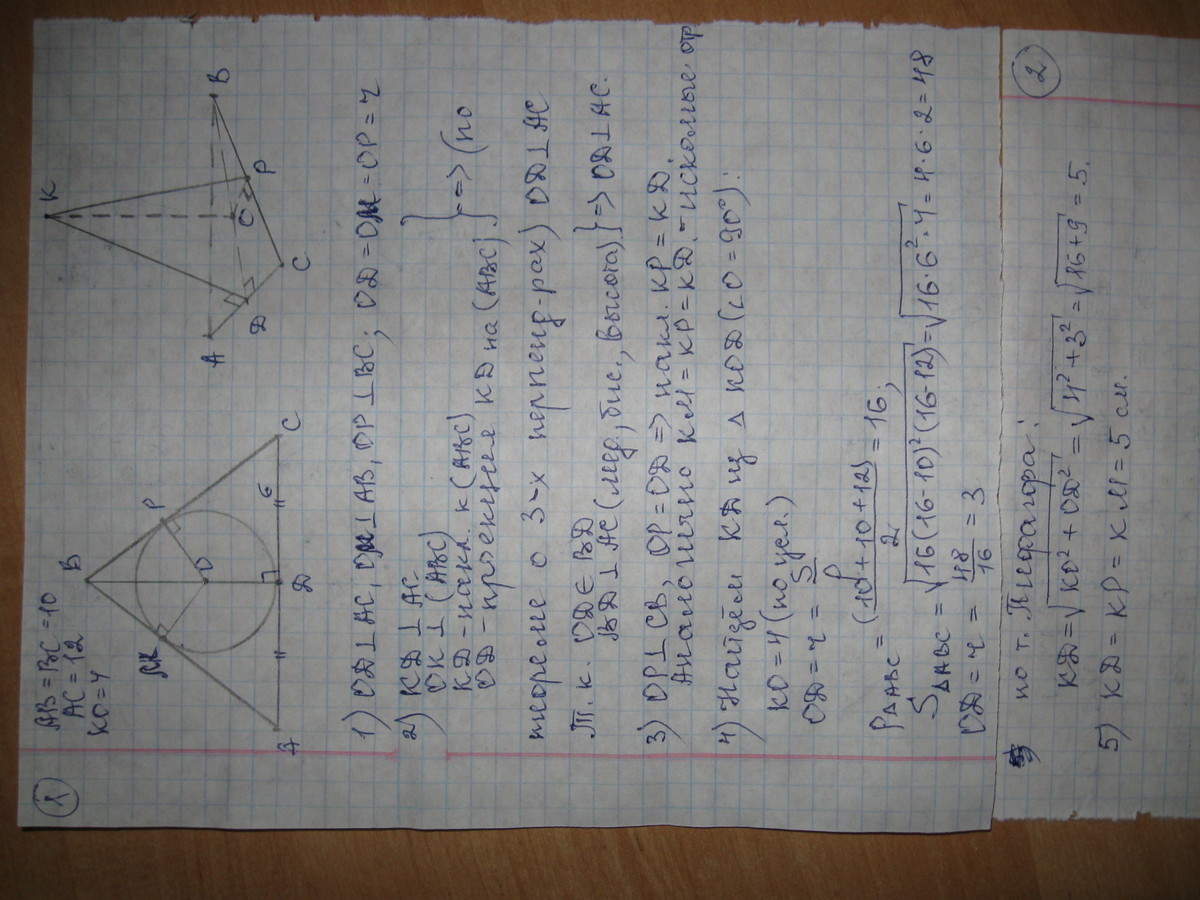 1
AB = BC = 10
AC = 12
KO = 4
B
M
P
O
6
A
D
C
K
A
B
D
O
P
C
1) OD⊥AC, OM⊥AB, OP⊥BC; OD = OM = OP = r
2) KD ⊥ AC.
OK ⊥ (ABC)
KD - накл. к (ABC)
OD - проекция KD на (ABC).} => (по
теореме о 3-х перпенд-рах) OD⊥AC
Т.к. OD ∈ BD
BD ⊥ AC (мед., бис., высота)} => OD⊥AC.
3) OP⊥CB, OP=OD => накл. KP = KD.
Аналогично KM = KP = KD. - искомые отр
4) Найдём KD из △ KOD (∠O = 90°):
KO = 4 (по усл.)
OD = r = S/p
P△ABC = (10+10+12)/2 = 16;
S△ABC = √16(16-10)²(16-12) = √16·6²·4 = 4·6·2 = 48
OD = r = 48/16 = 3
2
по т. Пифагора:
KD = √KO² + OD² = √4² + 3² = √16+9 = 5.
5) KD = KP = KM = 5 см.